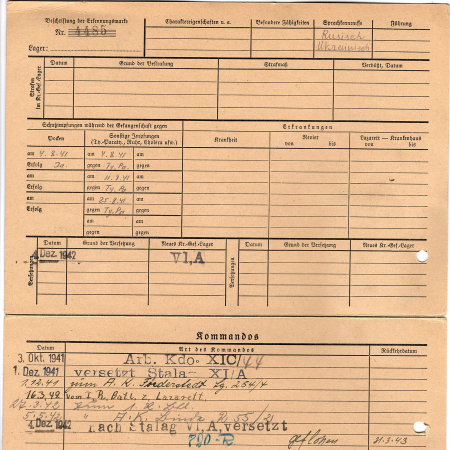 Beschriftung der Erkennungsmarke
Nr. 4485
Lager:
Charaktereigenschaften u. a.
Besondere Fähigkeiten
Sprachkenntnisse
Führung
Russisch
Ukrainisch
Strafen im Kr.-Gef.-Lager
Datum
Grund der Bestrafung
Strafmaß
Verbüßt, Datum
Schutzimpfungen während der Gefangenschaft gegen
Erkrankungen
Pocken
Sonstige Impfungen
(Ty.-Paraty., Ruhr, Cholera usw.)
Krankheit
Revier
von bis
Lazarett — Krankenhaus
von bis
am 4.8.41 am 4.8.41 am
Erfolg Ja. gegen Ty. Pa. gegen
am am 11.8.41 am
Erfolg gegen Ty. Pa gegen
am am 25.8.41 am
Erfolg gegen Ty. Pa gegen
am am
gegen gegen
Versetzungen
Datum
Grund der Versetzung
Neues Kr.-Gef.-Lager
Versetzungen
Datum
Grund der Versetzung
Neues Kr.-Gef.-Lager
Dez. 1942 VI, A
Kommandos
Datum
Art des Kommandos
Rückkehrdatum
3. Okt. 1941 Arb. Kdo. XIC/44
1. Dez. 1941 versetzt Stala- XI/A
1.12.41 zum A. K.
16.3.42 vom
55/21
4. Dez. 1942 nach Stalag VI, A, versetzt
720-R 21.3.43